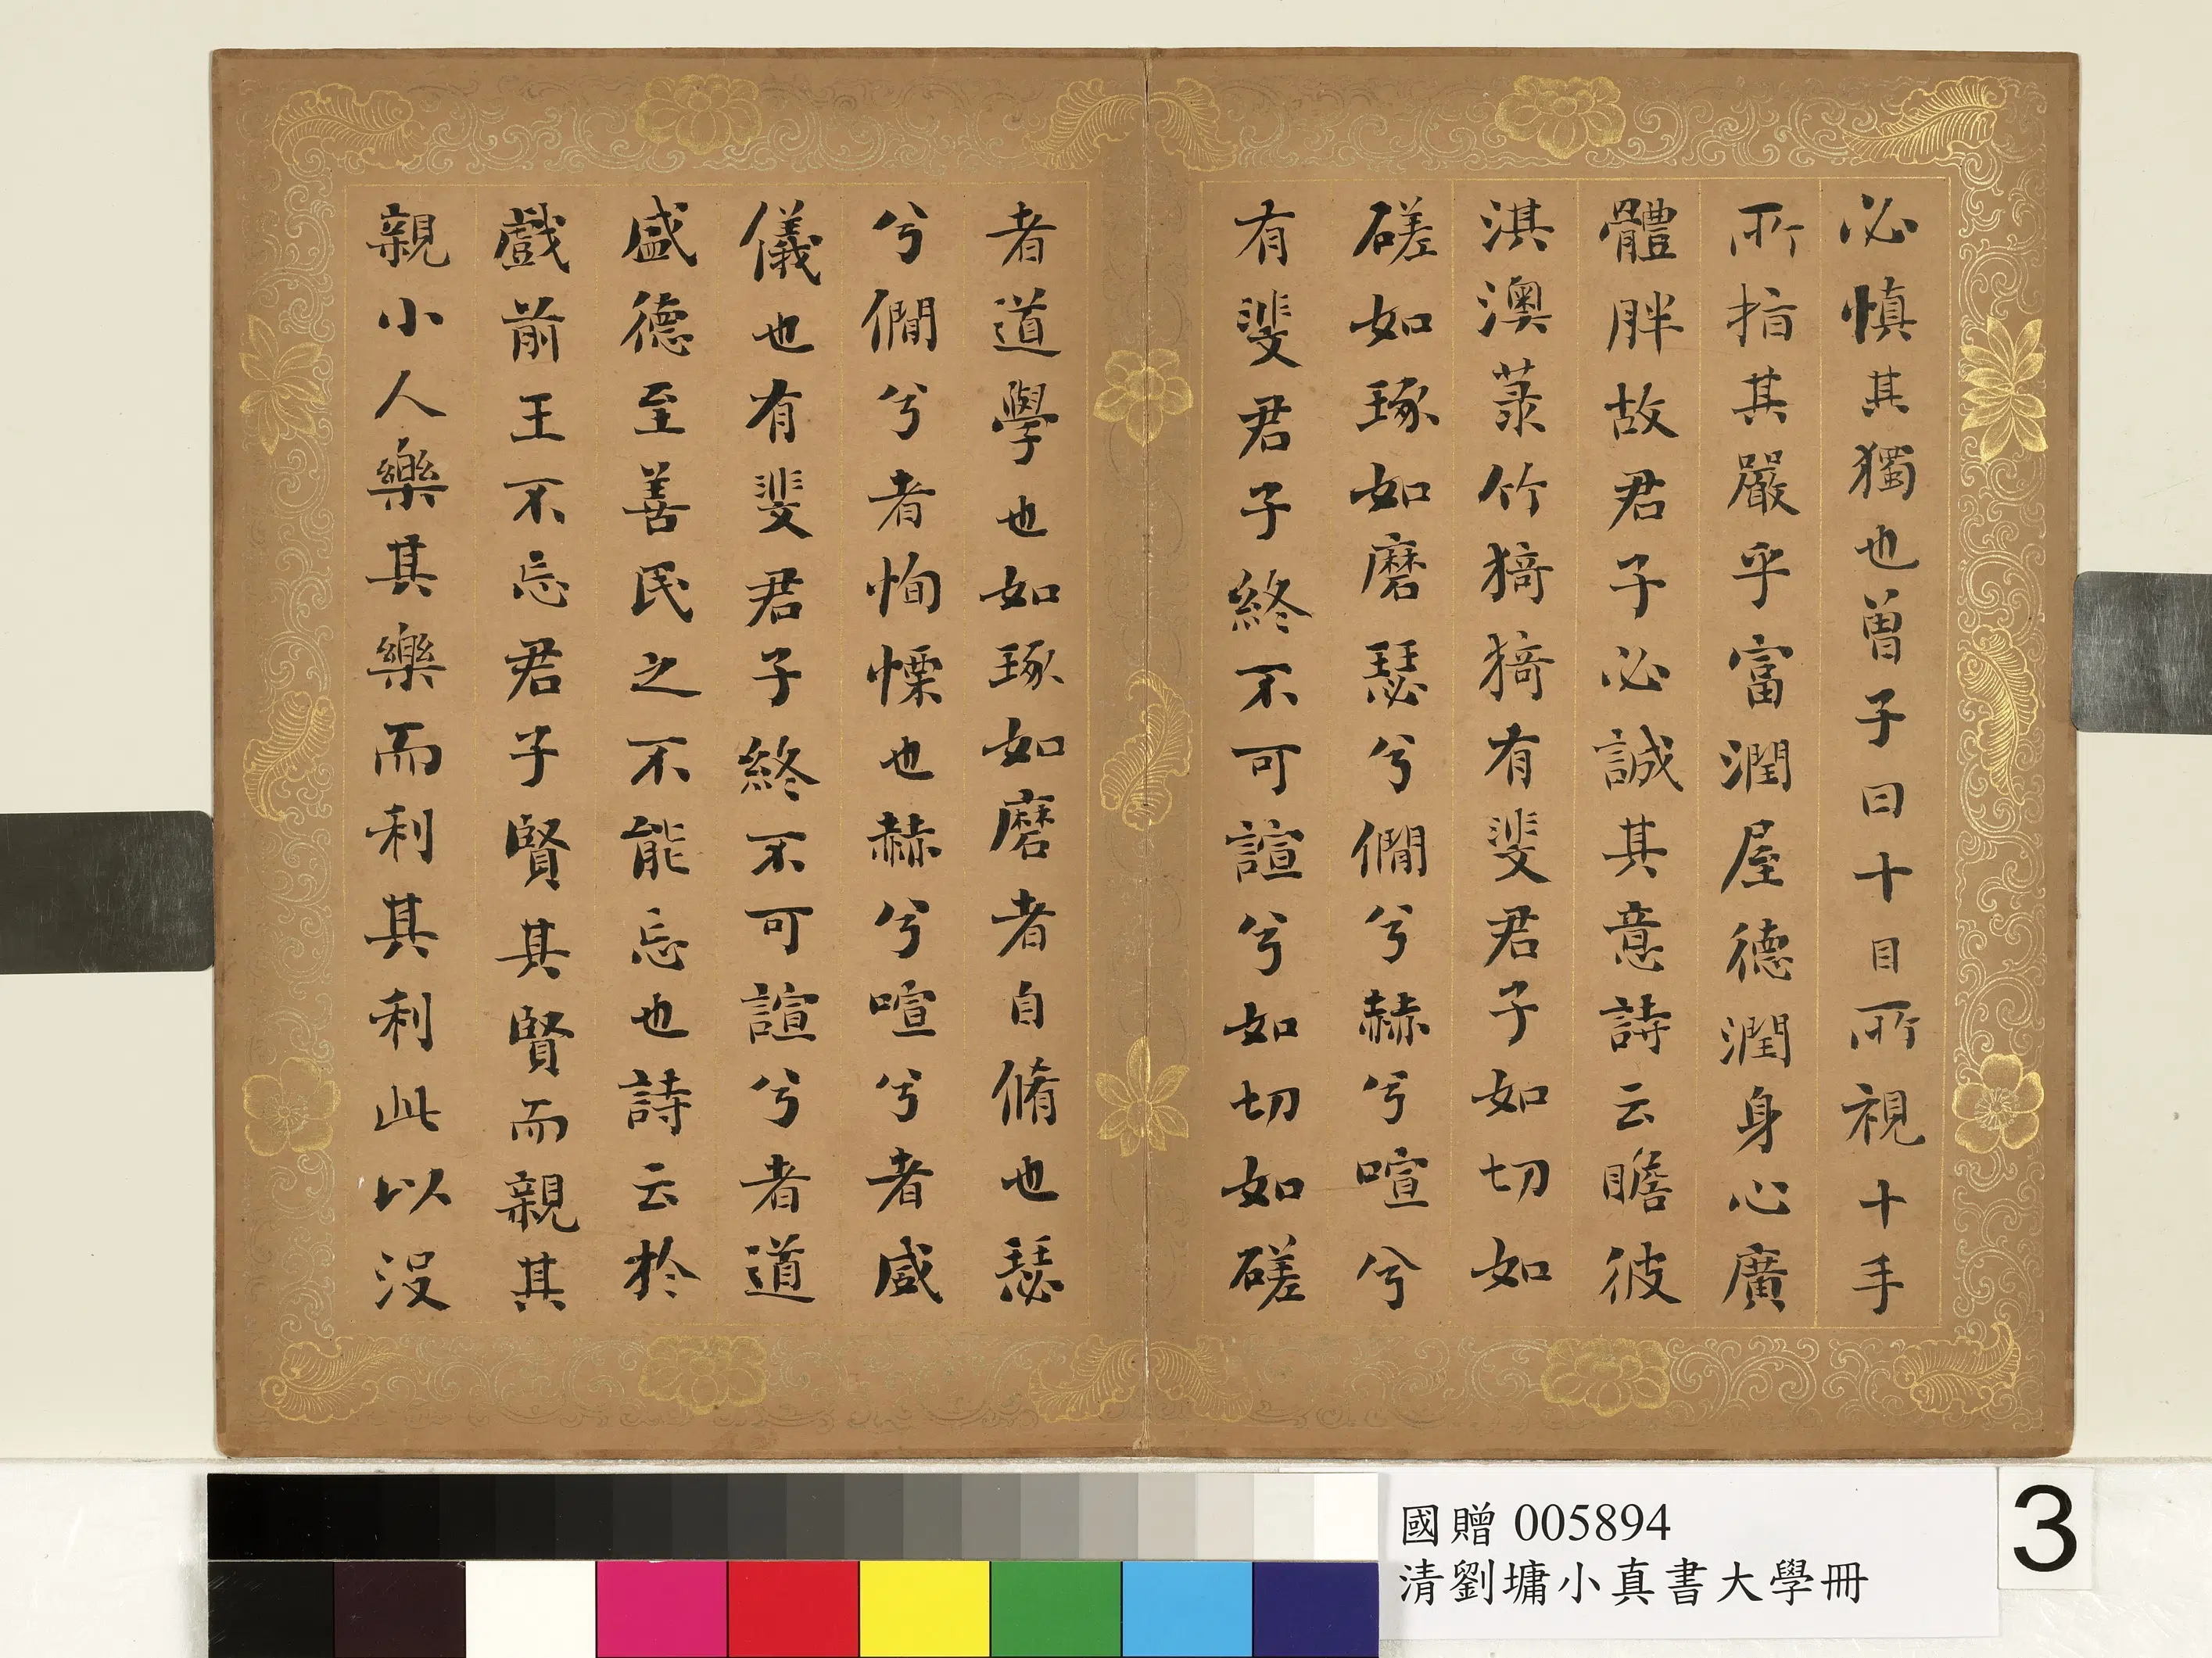 必慎其獨也曾子曰十目所視十手
所指其嚴乎富潤屋德潤身心廣
體胖故君子必誠其意詩云瞻彼
淇澳菉竹猗猗有斐君子如切如
磋如琢如磨瑟兮僩兮赫兮喧兮
有斐君子終不可諠兮如切如磋
者道學也如琢如磨者自脩也瑟
兮僩兮者恂慄也赫兮喧兮者威
儀也有斐君子終不可諠兮者道
盛德至善民之不能忘也詩云於
戲前王不忘君子賢其賢而親其
親小人樂其樂而利其利此以沒
國贈 005894
清劉墉小真書大學冊
3